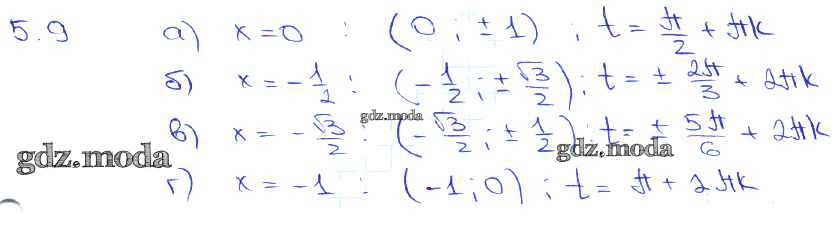 5.9 а) x = 0 : (0 ; ± 1) ; t = π/2 + πk
б) x = -1/2 : (-1/2 ; ± √3/2) ; t = ± 2π/3 + 2πk
gdz.moda
в) x = -√3/2 : (-√3/2 ; ± 1/2) ; t = ± 5π/6 + 2πk
gdz.moda gdz.moda
г) x = -1 : (-1 ; 0) ; t = π + 2πk